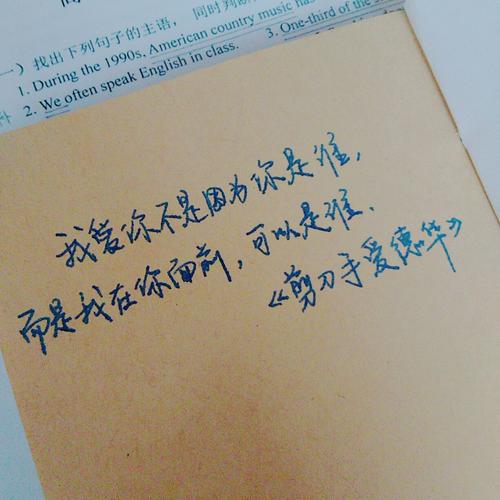 一）找出下列句子的主语，同时判断
1. During the 1990s, American country music has
2. We often speak English in class.
3. One-third of the
我爱你不是因为你是谁,
而是我在你面前,可以是谁.
《剪刀手爱德华》